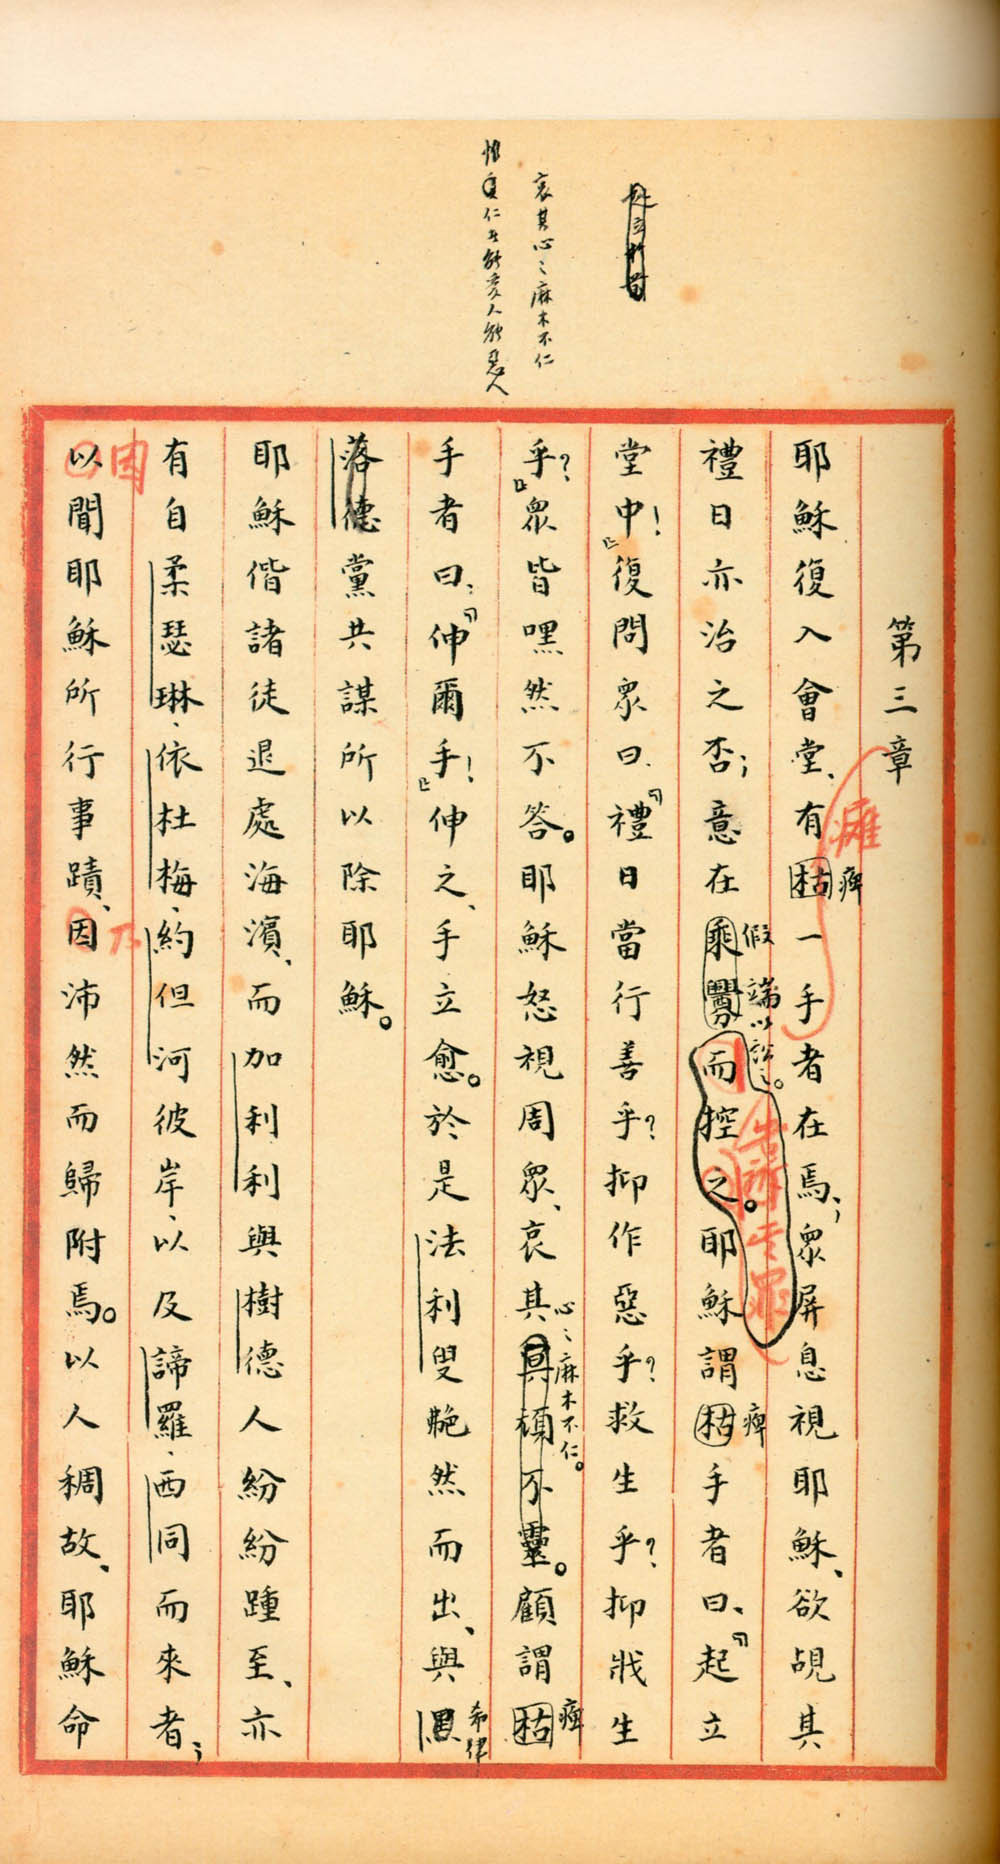 惟仁者能愛人能惡人
哀其心之麻木不仁
第三章
耶穌復入會堂、有枯一手者在焉；眾屏息視耶穌、欲覘其
癱
痺
禮日亦治之否；意在乘釁而控之。耶穌謂枯手者曰、『起立
假端以訟之。
痺
堂中！』復問眾曰、『禮日當行善乎？抑作惡乎？救生乎？抑戕生
乎？』眾皆嘿然不答。耶穌怒視周眾、哀其冥頑不靈。顧謂枯
心之麻木不仁。
痺
手者曰：『伸爾手！』伸之、手立愈。於是法利叟艴然而出、與黑
希律
落德黨共謀所以除耶穌。
耶穌偕諸徒退處海濱、而加利利與樹德人紛紛踵至、亦
有自柔瑟琳、依杜梅、約但河彼岸、以及諦羅、西同而來者；
以聞耶穌所行事蹟、因沛然而歸附焉。以人稠故、耶穌命
因
乃